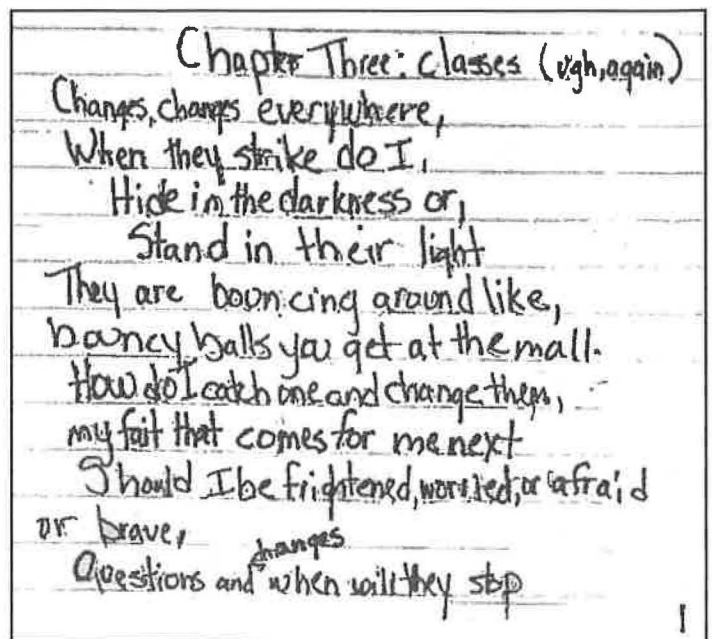 Chapter Three: Classes (ugh, again)
Changes, changes everywhere,
When they strike do I,
Hide in the darkness or,
Stand in their light
They are bouncing around like,
bouncy balls you get at the mall.
How do I catch one and change them,
my fait that comes for me next
Should I be frightened, worried, or afraid
or brave,
changes
Questions and when will they stop
1